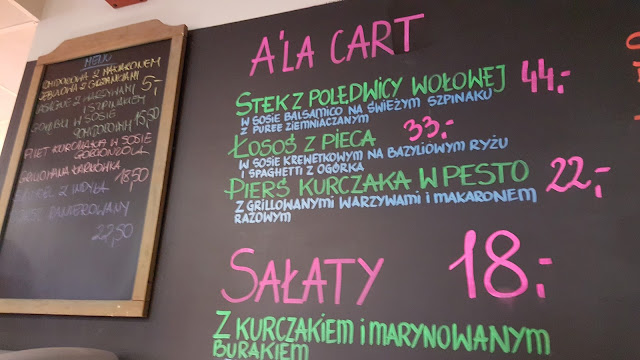 MENU
POMIDOROWA Z MAKARONEM
CEBULOWA Z GRZANKAMI
5,-
Z WARZYWAMI
I SZPINAKIEM
W SOSIE
POMIDOROWYM 15,50
FILET KURCZAKA W SOSIE
GORGONZOLA
GRILLOWANA KARKÓWKA
18,50
PANIEROWANY
22,50
A'LA CART
STEK Z POLĘDWICY WOŁOWEJ 44,-
W SOSIE BALSAMICO NA ŚWIEŻYM SZPINAKU
Z PUREE ZIEMNIACZANYM
ŁOSOŚ Z PIECA 33,-
W SOSIE KREWETKOWYM NA BAZYLIOWYM RYŻU
I SPAGHETTI Z OGÓRKA
PIERŚ KURCZAKA W PESTO 22,-
Z GRILLOWANYMI WARZYWAMI I MAKARONEM
RAZOWYM
SAŁATY 18,-
Z KURCZAKIEM I MARYNOWANYM
BURAKIEM